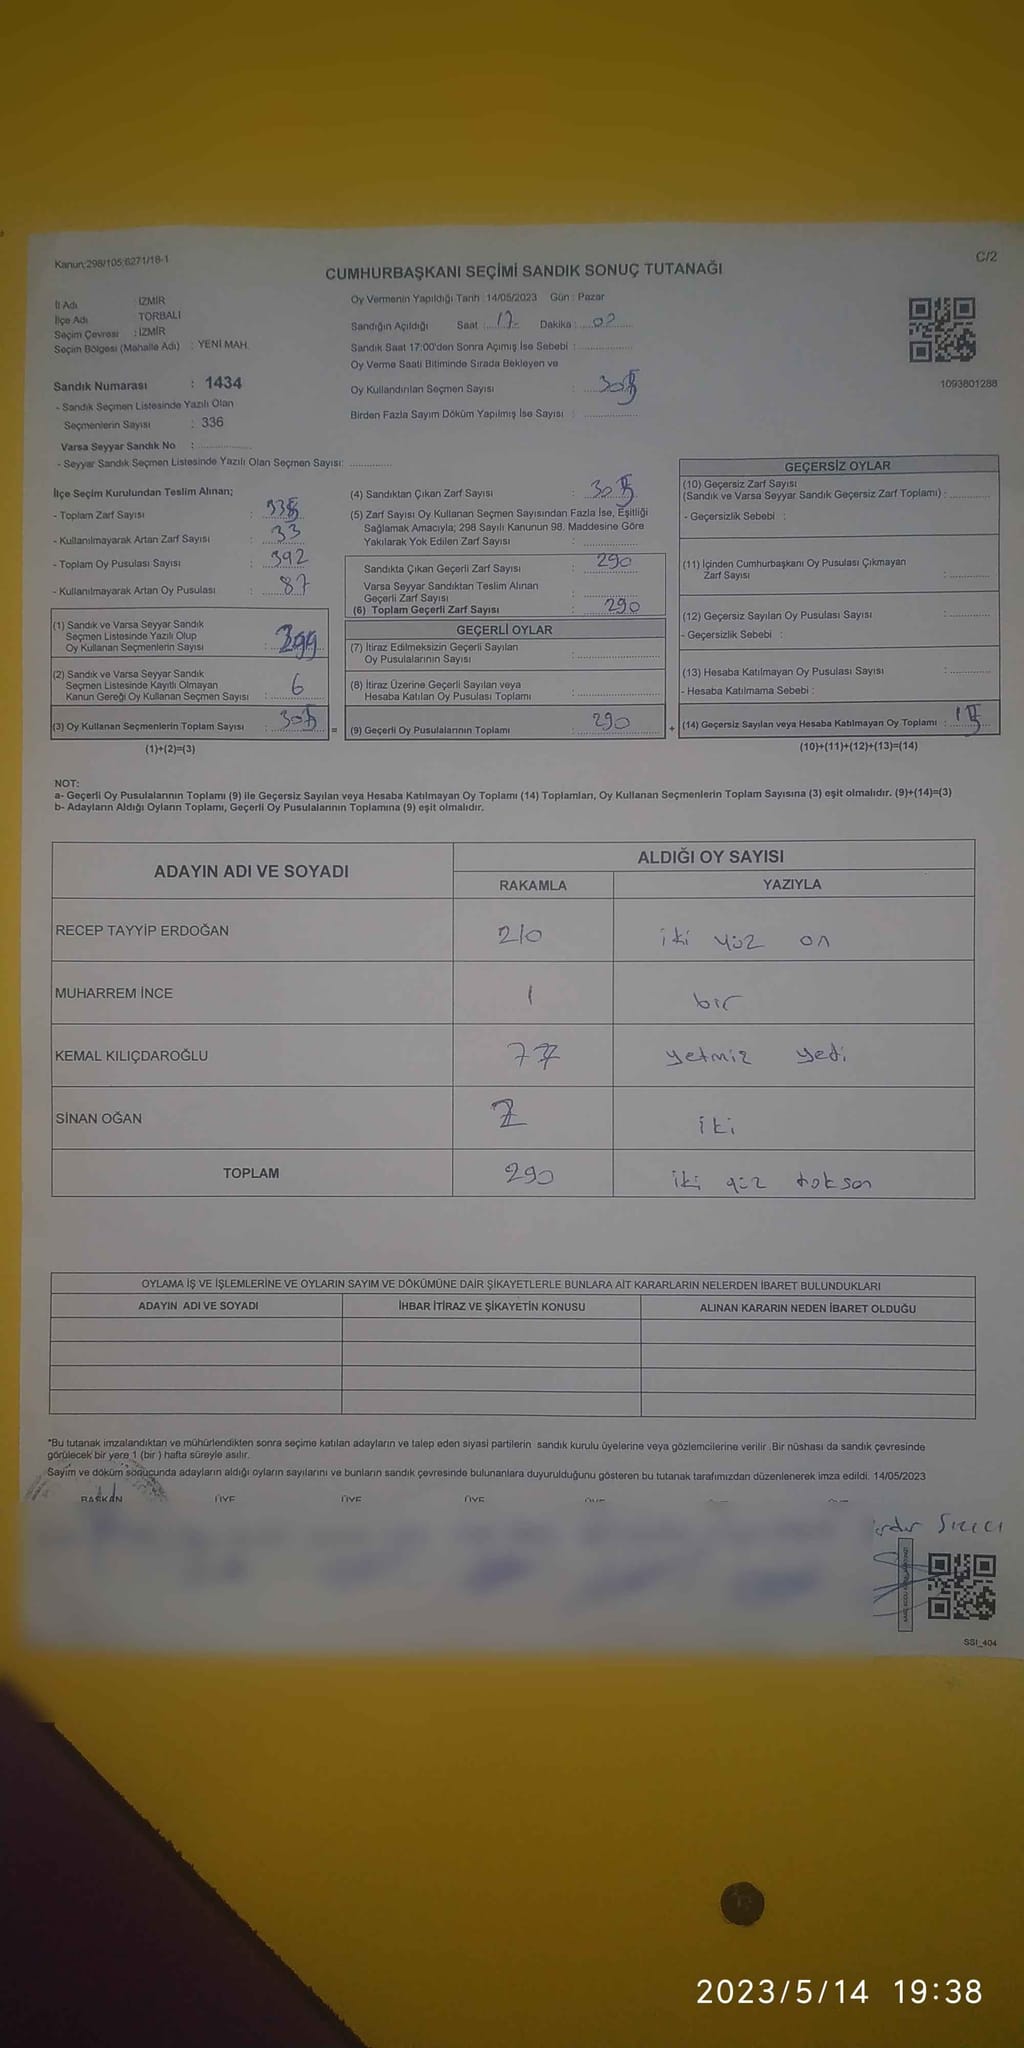 Kanun:298/105;6271/18-1
C/2
CUMHURBAŞKANI SEÇİMİ SANDIK SONUÇ TUTANAĞI
İl Adı : İZMİR
İlçe Adı : TORBALI
Seçim Çevresi : İZMİR
Seçim Bölgesi (Mahalle Adı) : YENİ MAH.
Sandık Numarası : 1434
- Sandık Seçmen Listesinde Yazılı Olan
Seçmenlerin Sayısı : 336
Varsa Seyyar Sandık No :
- Seyyar Sandık Seçmen Listesinde Yazılı Olan Seçmen Sayısı:
Oy Vermenin Yapıldığı Tarih : 14/05/2023 Gün : Pazar
Sandığın Açıldığı Saat : 17 Dakika : 00
Sandık Saat 17:00'den Sonra Açımış İse Sebebi :
Oy Verme Saati Bitiminde Sırada Bekleyen ve
Oy Kullandırılan Seçmen Sayısı : 305
Birden Fazla Sayım Döküm Yapılmış İse Sayısı :
1093801288
İlçe Seçim Kurulundan Teslim Alınan;
- Toplam Zarf Sayısı :
- Kullanılmayarak Artan Zarf Sayısı : 33
- Toplam Oy Pusulası Sayısı : 392
- Kullanılmayarak Artan Oy Pusulası : 87
(1) Sandık ve Varsa Seyyar Sandık
Seçmen Listesinde Yazılı Olup
Oy Kullanan Seçmenlerin Sayısı : 299
(2) Sandık ve Varsa Seyyar Sandık
Seçmen Listesinde Kayıtlı Olmayan
Kanun Gereği Oy Kullanan Seçmen Sayısı : 6
(3) Oy Kullanan Seçmenlerin Toplam Sayısı : 305
(1)+(2)=(3)
(4) Sandıktan Çıkan Zarf Sayısı : 305
(5) Zarf Sayısı Oy Kullanan Seçmen Sayısından Fazla İse, Eşitliği
Sağlamak Amacıyla; 298 Sayılı Kanunun 98. Maddesine Göre
Yakılarak Yok Edilen Zarf Sayısı :
Sandıkta Çıkan Geçerli Zarf Sayısı : 290
Varsa Seyyar Sandıktan Teslim Alınan
Geçerli Zarf Sayısı :
(6) Toplam Geçerli Zarf Sayısı : 290
GEÇERLİ OYLAR
(7) İtiraz Edilmeksizin Geçerli Sayılan
Oy Pusulalarının Sayısı :
(8) İtiraz Üzerine Geçerli Sayılan veya
Hesaba Katılan Oy Pusulası Toplamı :
= (9) Geçerli Oy Pusulalarının Toplamı : 290
GEÇERSİZ OYLAR
(10) Geçersiz Zarf Sayısı
(Sandık ve Varsa Seyyar Sandık Geçersiz Zarf Toplamı) :
- Geçersizlik Sebebi :
(11) İçinden Cumhurbaşkanı Oy Pusulası Çıkmayan
Zarf Sayısı :
(12) Geçersiz Sayılan Oy Pusulası Sayısı :
- Geçersizlik Sebebi :
(13) Hesaba Katılmayan Oy Pusulası Sayısı :
- Hesaba Katılmama Sebebi :
+ (14) Geçersiz Sayılan veya Hesaba Katılmayan Oy Toplamı : 15
(10)+(11)+(12)+(13)=(14)
NOT:
a- Geçerli Oy Pusulalarının Toplamı (9) ile Geçersiz Sayılan veya Hesaba Katılmayan Oy Toplamı (14) Toplamları, Oy Kullanan Seçmenlerin Toplam Sayısına (3) eşit olmalıdır. (9)+(14)=(3)
b- Adayların Aldığı Oyların Toplamı, Geçerli Oy Pusulalarının Toplamına (9) eşit olmalıdır.
ADAYIN ADI VE SOYADI
ALDIĞI OY SAYISI
RAKAMLA YAZIYLA
RECEP TAYYİP ERDOĞAN 210 iki yüz on
MUHARREM İNCE 1 bir
KEMAL KILIÇDAROĞLU 77 yetmiz yedi
SİNAN OĞAN 2 iki
TOPLAM 290 iki yüz doksan
OYLAMA İŞ VE İŞLEMLERİNE VE OYLARIN SAYIM VE DÖKÜMÜNE DAİR ŞİKAYETLERLE BUNLARA AİT KARARLARIN NELERDEN İBARET BULUNDUKLARI
ADAYIN ADI VE SOYADI İHBAR İTİRAZ VE ŞİKAYETİN KONUSU ALINAN KARARIN NEDEN İBARET OLDUĞU
*Bu tutanak imzalandıktan ve mühürlendikten sonra seçime katılan adayların ve talep eden siyasi partilerin sandık kurulu üyelerine veya gözlemcilerine verilir. Bir nüshası da sandık çevresinde
görülecek bir yere 1 (bir) hafta süreyle asılır.
Sayım ve döküm sonucunda adayların aldığı oyların sayılarını ve bunların sandık çevresinde bulunanlara duyurulduğunu gösteren bu tutanak tarafımızdan düzenlenerek imza edildi. 14/05/2023
BAŞKAN ÜYE ÜYE ÜYE ÜYE ÜYE ÜYE
SSI_404
2023/5/14 19:38